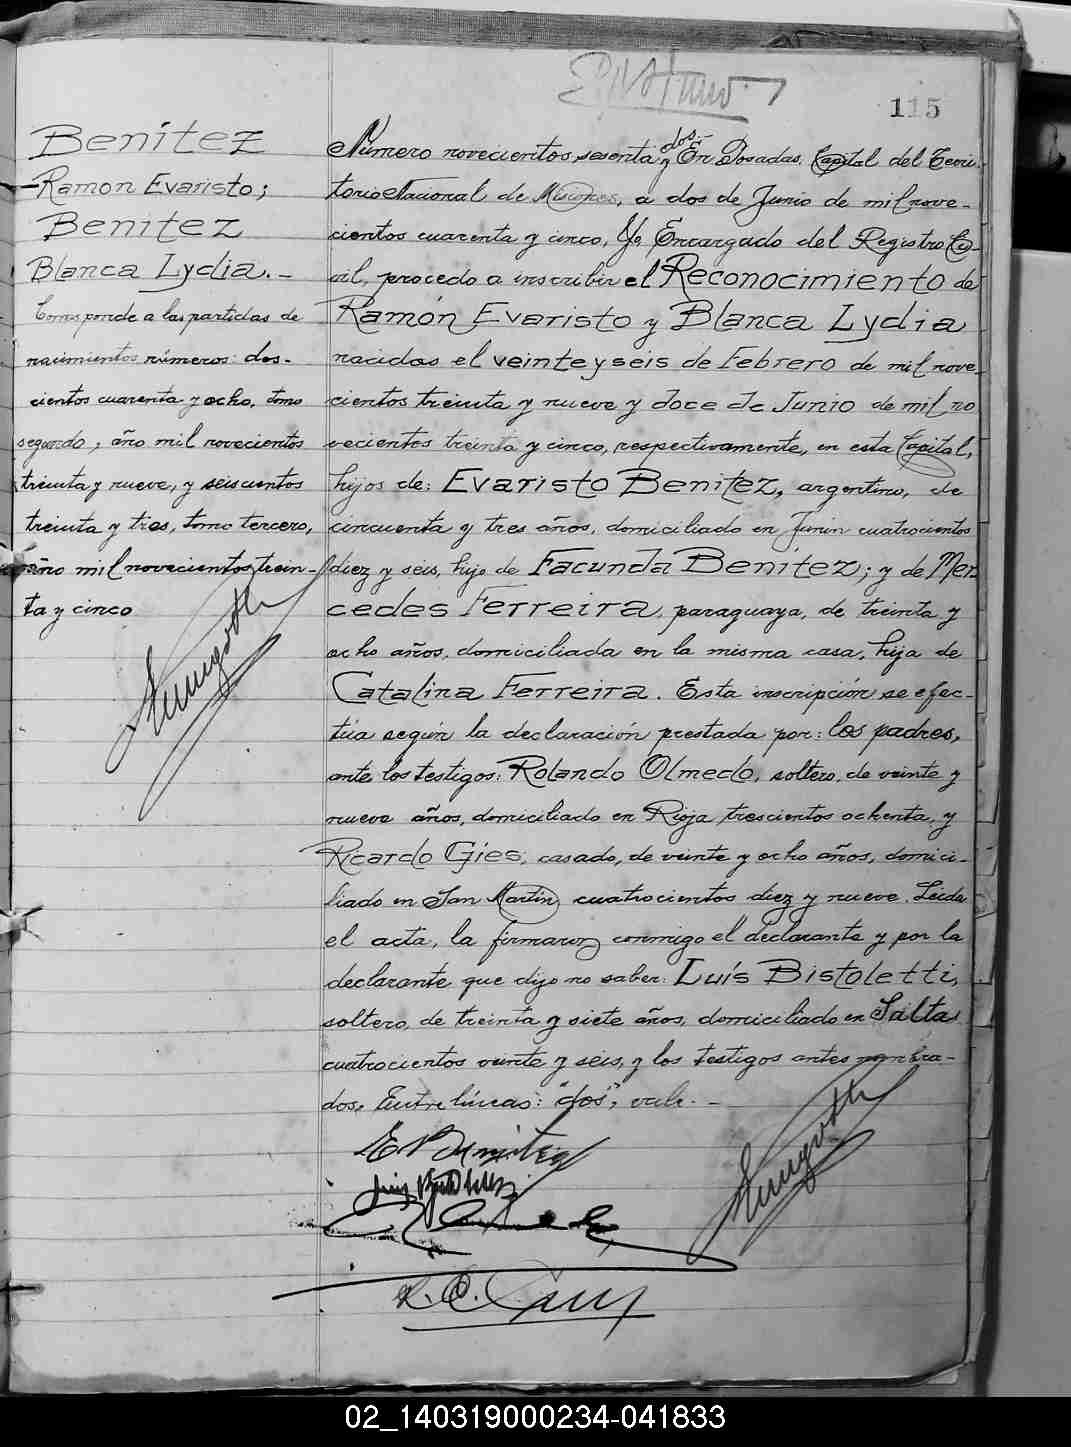 115
Benítez
Ramon Evaristo;
Benítez
Blanca Lydia.-
Corresponde a las partidas de
nacimientos números: dos-
cientos cuarenta y ocho, tomo
segundo, año mil novecientos
treinta y nueve, y seiscientos
treinta y tres, tomo tercero,
año mil novecientos trein-
ta y cinco
Número novecientos sesenta y dos.- En Posadas, Capital del Terri-
torio Nacional de Misiones, a dos de Junio de mil nove-
cientos cuarenta y cinco, Yo, Encargado del Registro Ci-
vil, procedo a inscribir el Reconocimiento de
Ramón Evaristo y Blanca Lydia
nacidos el veinte y seis de Febrero de mil nove-
cientos treinta y nueve y doce de Junio de mil no
vecientos treinta y cinco, respectivamente, en esta Capital,
hijos de: Evaristo Benítez, argentino, de
cincuenta y tres años, domiciliado en Junín cuatrocientos
diez y seis, hijo de Facunda Benítez; y de Mer-
cedes Ferreira, paraguaya, de treinta y
ocho años, domiciliada en la misma casa, hija de
Catalina Ferreira. Esta inscripción se efec-
túa según la declaración prestada por: los padres,
ante los testigos: Rolando Olmedo, soltero, de veinte y
nueve años, domiciliado en Rioja trescientos ochenta, y
Ricardo Gies, casado, de veinte y ocho años, domici-
liado en San Martín cuatrocientos diez y nueve. Leída
el acta, la firmaron conmigo el declarante y por la
declarante que dijo no saber: Luís Bistoletti,
soltero, de treinta y siete años, domiciliado en Salta
cuatrocientos veinte y seis, y los testigos antes nombra-
dos. Entre líneas: "dos", vale.-
E Benitez
02_140319000234-041833